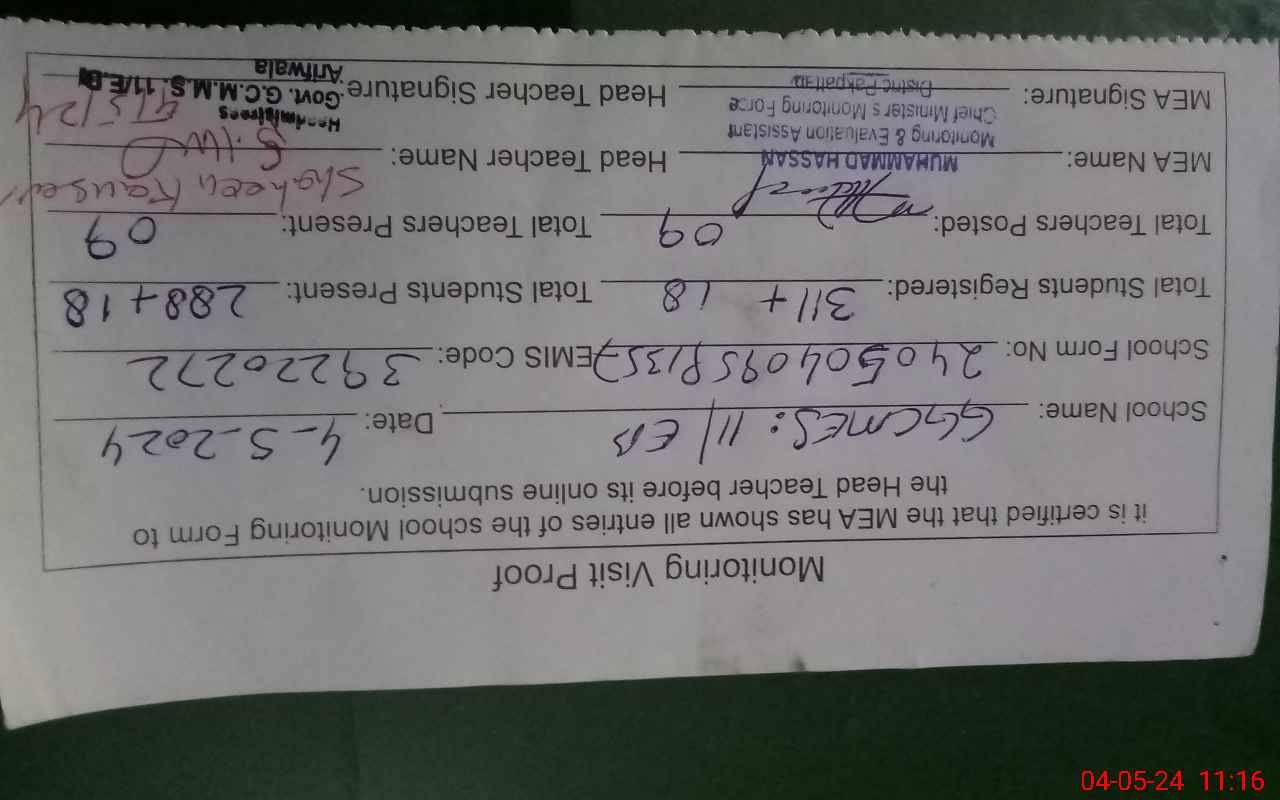 Monitoring Visit Proof
it is certified that the MEA has shown all entries of the school Monitoring Form to
the Head Teacher before its online submission.
School Name: GGCMES: 11/EB Date: 4-5-2024
School Form No: EMIS Code: 39220272
Total Students Registered: 311+18 Total Students Present: 288+18
Total Teachers Posted: 09 Total Teachers Present: 09
MEA Name: MUHAMMAD HASSAN Head Teacher Name: Shaheen Kauser
Monitoring & Evaluation Assistant
Chief Minister's Monitoring Force
District Pakpattan
MEA Signature: Head Teacher Signature:
Headmistress
Govt. G.C.M.M.S. 11/E.B
Arifwala
04-05-24 11:16